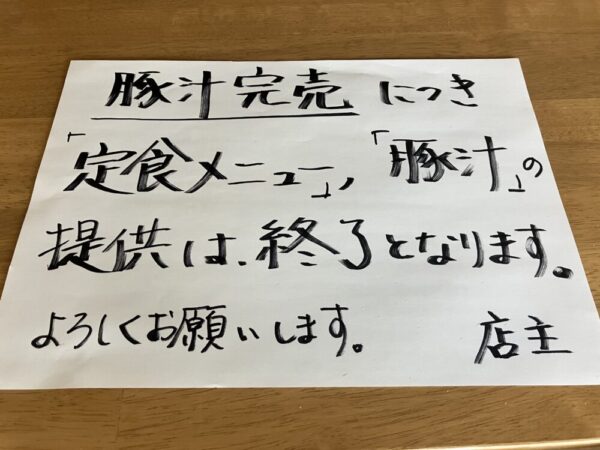 豚汁完売につき
「定食メニュー」,「豚汁」の
提供は、終了となります。
よろしくお願いします。 店主